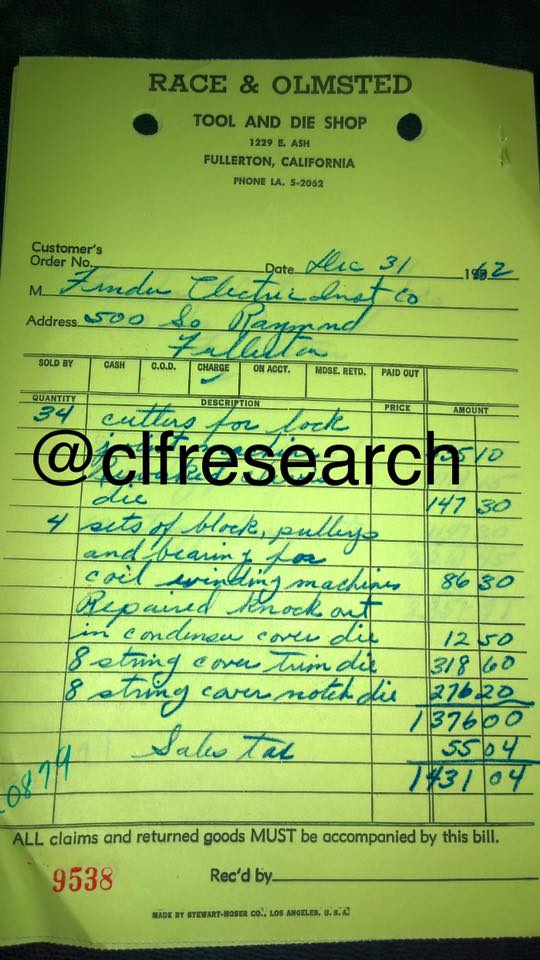 RACE & OLMSTED
TOOL AND DIE SHOP
1229 E. ASH
FULLERTON, CALIFORNIA
PHONE LA. 5-2062
Customer's
Order No. Date Dec 31 1962
M Fender Electric Inst Co
Address 500 So Raymond
Fullerton
SOLD BY CASH C.O.D. CHARGE ON ACCT. MDSE. RETD. PAID OUT
QUANTITY DESCRIPTION PRICE AMOUNT
34 cutters for lock
@clfresearch 10
die 147 30
4 sets of block, pulleys
and bearing for
coil winding machines 86 30
Repaired knock out
in condenser cover die 12 50
8 string cover trim die 318 60
8 string cover notch die 276 20
1376 00
Sales tax 55 04
1431 04
0879
ALL claims and returned goods MUST be accompanied by this bill.
9538 Rec'd by
MADE BY STEWART-MOSER CO., LOS ANGELES, U. S. A.